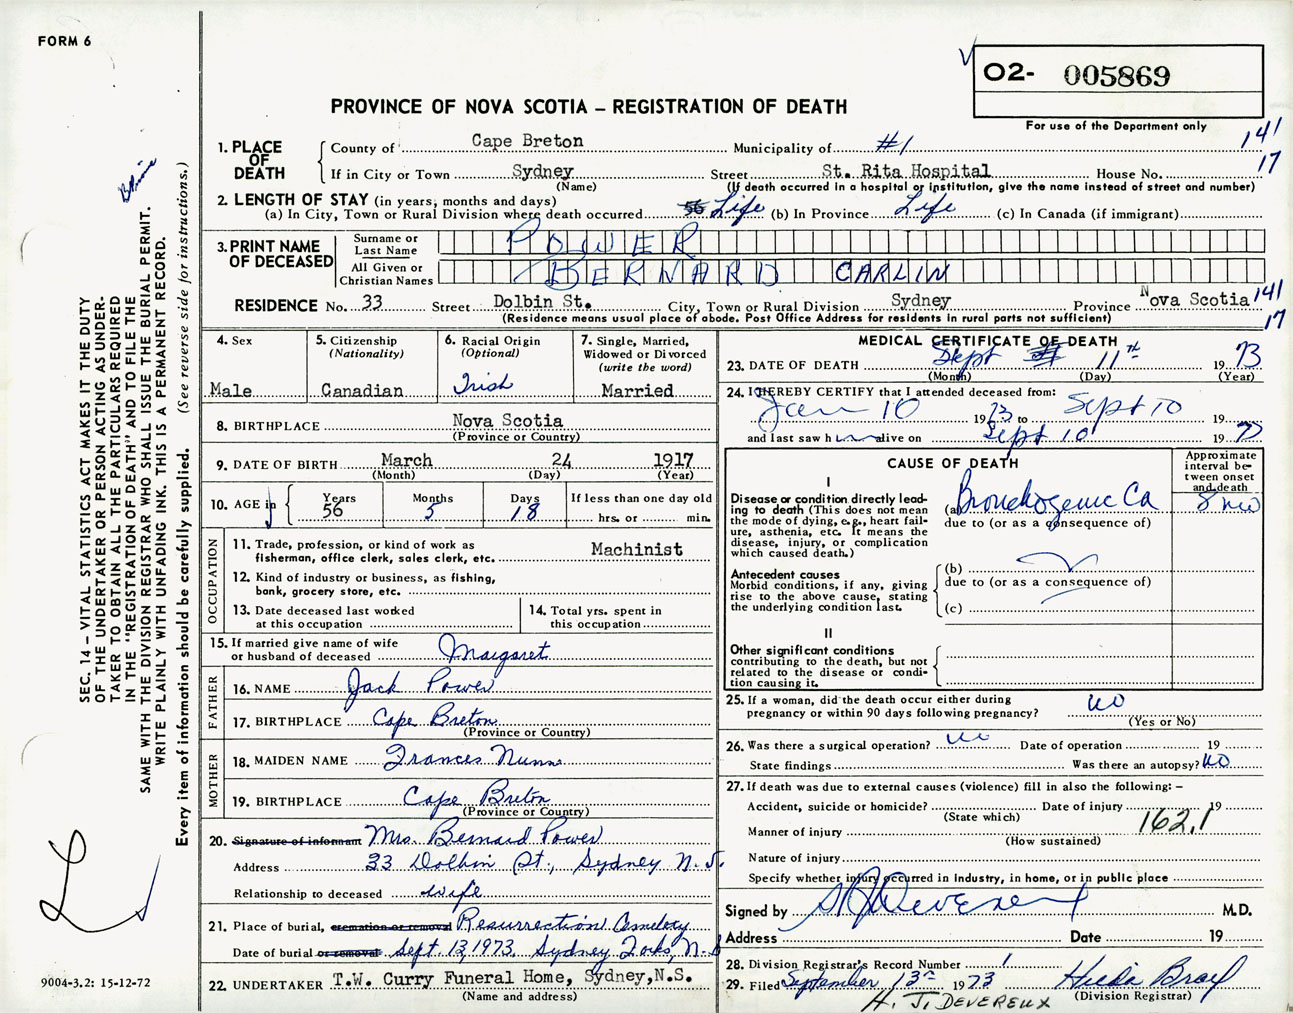 FORM 6
O2- 005869
For use of the Department only
PROVINCE OF NOVA SCOTIA – REGISTRATION OF DEATH
SEC. 14 – VITAL STATISTICS ACT MAKES IT THE DUTY
OF THE UNDERTAKER OR PERSON ACTING AS UNDER-
TAKER TO OBTAIN ALL THE PARTICULARS REQUIRED
IN THE "REGISTRATION OF DEATH" AND TO FILE THE
SAME WITH THE DIVISION REGISTRAR WHO SHALL ISSUE THE BURIAL PERMIT.
WRITE PLAINLY WITH UNFADING INK. THIS IS A PERMANENT RECORD.
Every item of information should be carefully supplied. (See reverse side for instructions.)
1. PLACE OF DEATH
County of Cape Breton Municipality of #1 141
If in City or Town Sydney Street St. Rita Hospital House No. 17
(Name) (If death occurred in a hospital or institution, give the name instead of street and number)
2. LENGTH OF STAY (in years, months and days)
(a) In City, Town or Rural Division where death occurred 56 Life (b) In Province Life (c) In Canada (if immigrant)
3. PRINT NAME OF DECEASED
Surname or Last Name POWER
All Given or Christian Names BERNARD CARLIN
RESIDENCE No. 33 Street Dolbin St. City, Town or Rural Division Sydney Province Nova Scotia 141
(Residence means usual place of abode. Post Office Address for residents in rural parts not sufficient) 17
4. Sex Male
5. Citizenship (Nationality) Canadian
6. Racial Origin (Optional) Irish
7. Single, Married, Widowed or Divorced (write the word) Married
8. BIRTHPLACE Nova Scotia
(Province or Country)
9. DATE OF BIRTH March 24 1917
(Month) (Day) (Year)
10. AGE in Years 56 Months 5 Days 18 If less than one day old hrs. or min.
OCCUPATION
11. Trade, profession, or kind of work as fisherman, office clerk, sales clerk, etc. Machinist
12. Kind of industry or business, as fishing, bank, grocery store, etc.
13. Date deceased last worked at this occupation
14. Total yrs. spent in this occupation
15. If married give name of wife or husband of deceased Margaret
FATHER
16. NAME Jack Power
17. BIRTHPLACE Cape Breton
(Province or Country)
MOTHER
18. MAIDEN NAME Frances Nunn
19. BIRTHPLACE Cape Breton
(Province or Country)
20. Signature of informant Mrs. Bernard Power
Address 33 Dolbin St., Sydney N.S.
Relationship to deceased wife
21. Place of burial, cremation or removal Resurrection Cemetery
Date of burial or removal Sept. 13, 1973. Sydney Forks, N.S
22. UNDERTAKER T.W. Curry Funeral Home, Sydney,N.S.
(Name and address)
MEDICAL CERTIFICATE OF DEATH
23. DATE OF DEATH Sept 11th 1973
(Month) (Day) (Year)
24. I HEREBY CERTIFY that I attended deceased from:
Jan 10 1973 to Sept 10 19
and last saw him alive on Sept 10 1973
CAUSE OF DEATH
Approximate interval between onset and death
I
Disease or condition directly lead-
ing to death (This does not mean
the mode of dying, e.g., heart fail-
ure, asthenia, etc. It means the
disease, injury, or complication
which caused death.)
(a) Bronchogenic Ca 8 mo
due to (or as a consequence of)
Antecedent causes
Morbid conditions, if any, giving
rise to the above cause, stating
the underlying condition last.
(b)
due to (or as a consequence of)
(c)
II
Other significant conditions
contributing to the death, but not
related to the disease or condi-
tion causing it.
25. If a woman, did the death occur either during
pregnancy or within 90 days following pregnancy? no
(Yes or No)
26. Was there a surgical operation? no Date of operation 19
State findings Was there an autopsy? no
27. If death was due to external causes (violence) fill in also the following: –
Accident, suicide or homicide? Date of injury 19
(State which) 162.1
Manner of injury
(How sustained)
Nature of injury
Specify whether injury occurred in Industry, in home, or in public place
Signed by HJ Devereux M.D.
Address Date 19
28. Division Registrar's Record Number 1
29. Filed September 13th 1973
(Division Registrar)
H. J. DEVEREUX
9004-3.2: 15-12-72